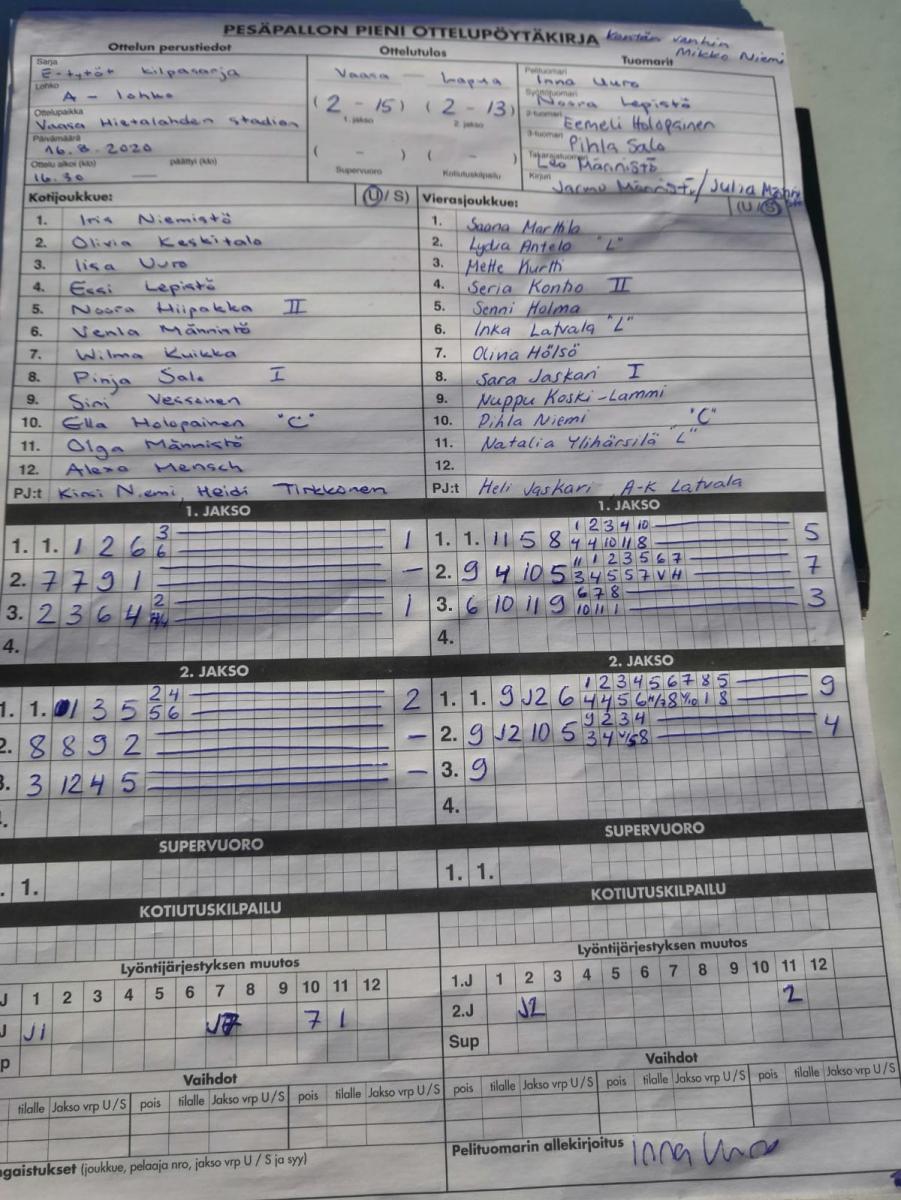 PESÄPALLON PIENI OTTELUPÖYTÄKIRJA
Kentän vanhin
Mikko Niemi
Ottelun perustiedot
Ottelutulos
Tuomarit
Sarja
E-tytöt kilpasarja
Lohko
A - lohko
Ottelupaikka
Vaasa Hietalahden stadion
Päivämäärä
16.8.2020
Ottelu alkoi (klo) päättyi (klo)
16.30 —
Vaasa — Lapua
(2 - 15) (2 - 13)
1. jakso 2. jakso
( - ) ( - )
Supervuoro Kotiutuskilpailu
Pelituomari
Inna Uuro
Syöttötuomari
Noora Lepistö
2-tuomari
Eemeli Holopainen
3-tuomari
Pihla Salo
Takarajatuomari
Leo Männistö
Kirjuri
Jarmo Männistö / Julia
Kotijoukkue: (U / S)
1. Iris Niemistö
2. Olivia Keskitalo
3. Iisa Uuro
4. Essi Lepistö
5. Noora Hiipakka II
6. Venla Männistö
7. Wilma Kuikka
8. Pinja Salo I
9. Sini Vessonen
10. Ella Holopainen "C"
11. Olga Männistö
12. Alexa Mensch
PJ:t Kirsi Niemi, Heidi Tirkkonen
Vierasjoukkue: (U / S)
1. Saana Marttila
2. Lydia Antelo "L"
3. Mette Kurtti
4. Seria Konho II
5. Senni Holma
6. Inka Latvala "L"
7. Olina Hölsö
8. Sara Jaskari I
9. Nuppu Koski-Lammi
10. Pihla Niemi "C"
11. Natalia Ylihärsilä "L"
12.
PJ:t Heli Jaskari A-K Latvala
1. JAKSO
1. 1. 1 2 6 3 1
6
2. 7 7 9 1 —
3. 2 3 6 4 2 1
4.
1. JAKSO
1. 1. 11 5 8 1 2 3 4 10 5
4 4 10 11 8
2. 9 4 10 5 11 1 2 3 5 6 7 7
3 4 5 5 7 V H
3. 6 10 11 9 6 7 8 3
10 11 1
4.
2. JAKSO
1. 1. 1 3 5 2 4 2
5 6
2. 8 8 9 2 —
3. 3 12 4 5 —
2. JAKSO
1. 1. 9 J2 6 1 2 3 4 5 6 7 8 5 9
4 4 5 6 4/7 8 4/10 1 8
2. 9 J2 10 5 9 2 3 4 4
3 4 4/5 8
3. 9
4.
SUPERVUORO
1.
SUPERVUORO
1. 1.
KOTIUTUSKILPAILU
KOTIUTUSKILPAILU
Lyöntijärjestyksen muutos
J 1 2 3 4 5 6 7 8 9 10 11 12
J J1 J7 7 1
p
Lyöntijärjestyksen muutos
1.J 1 2 3 4 5 6 7 8 9 10 11 12
2.J J2 2
Sup
Vaihdot
tilalle Jakso vrp U / S pois tilalle Jakso vrp U / S pois tilalle Jakso vrp U / S
Vaihdot
pois tilalle Jakso vrp U / S pois tilalle Jakso vrp U / S pois tilalle Jakso vrp U / S
ngaistukset (joukkue, pelaaja nro, jakso vrp U / S ja syy)
Pelituomarin allekirjoitus Inna Uuro